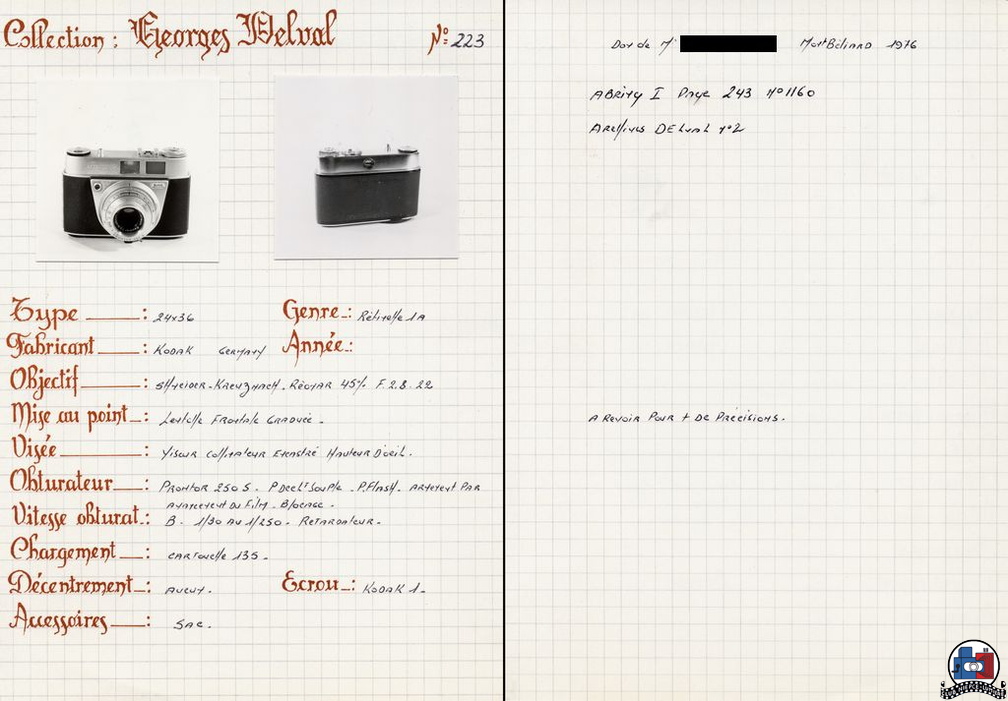 Collection : Georges Delval N° 223
Type : 24x36 Genre : Rétinette 1A
Fabricant : KODAK GERMANY Année :
Objectif : SHNEIDER - KREUZNACH. REOMAR 45% F. 2.8. 22
Mise au point : Lentille FRONTALE GRADUÉE.
Visée : VISEUR COLLIMATEUR ENCASTRÉ HAUTEUR D'OEIL.
Obturateur : PRONTOR 250 S. P DECLT SOUPLE. P. FLASH. ARMEMENT PAR
AVANCEMENT DU FILM. BLOCAGE.
Vitesse obturat. : B. 1/30 AU 1/250. RETARDATEUR.
Chargement : CARTOUCHE 135.
Décentrement : AUCUN. Ecrou : KODAK 1.
Accessoires : SAC.
Don de Mr MONTBÉLIARD 1976
ABRING I Page 243 N° 1160
ARCHIVES DELVAL N°2
A REVOIR POUR + DE PRÉCISIONS.